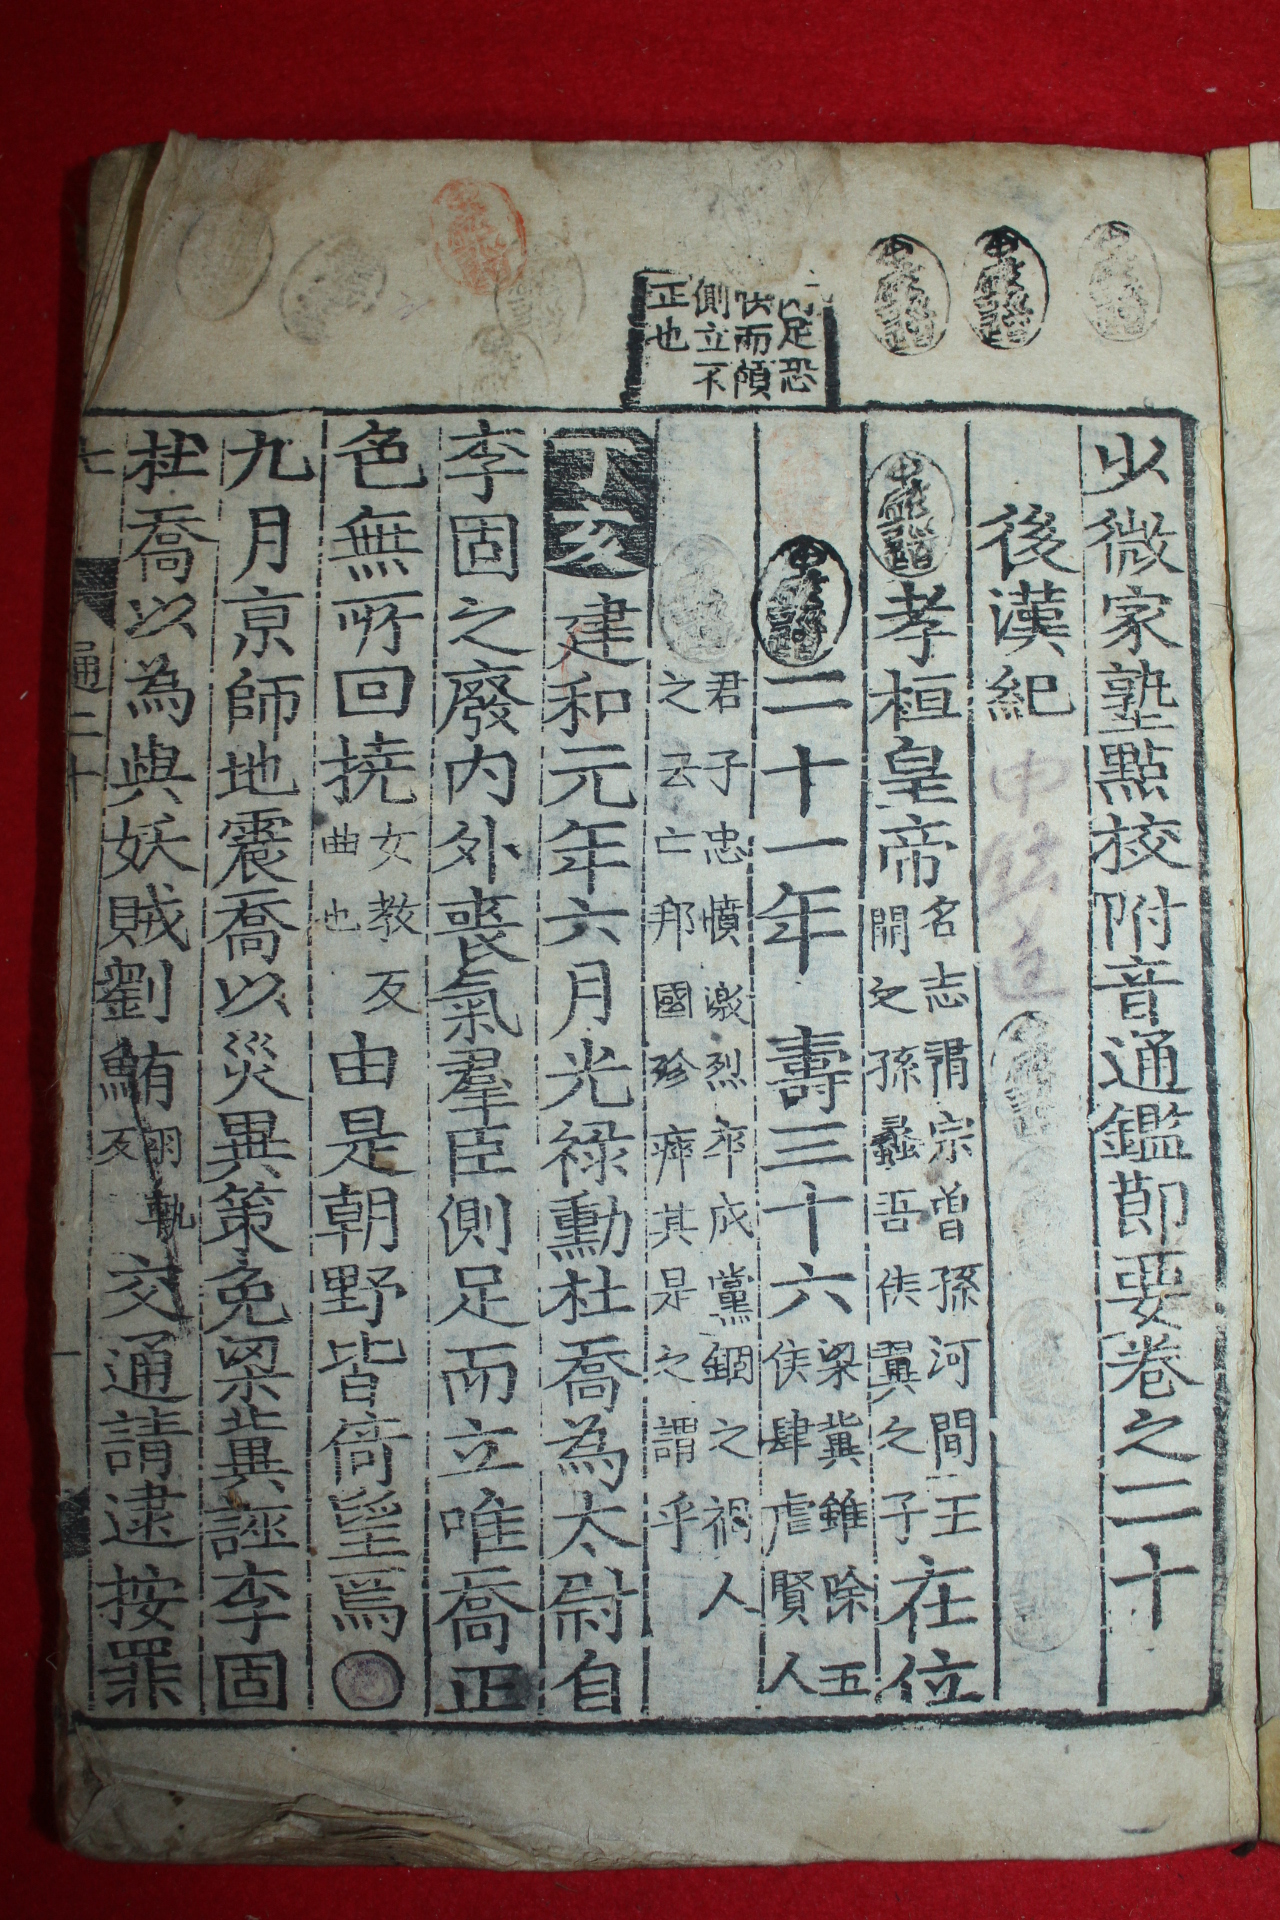 少微家塾點校附音通鑑節要卷之二十
後漢紀
孝桓皇帝
名志肅宗曾孫河間王
開之孫蠡吾侯翼之子
在位
二十一年
壽三十六
梁冀雖除五
侯肆虐賢人
君子忠憤激烈卒成黨錮之禍人
之云亡邦國殄瘁其是之謂乎
足恐
而傾
側立不
正也
丁亥
建和元年六月光祿勳杜喬為太尉自
李固之廢內外喪氣羣臣側足而立唯喬正
色無所回撓
女教反
曲也
由是朝野皆倚望焉○
九月京師地震喬以災異策免梁冀誣李固
杜喬以為與妖賊劉鮪
反
交通請逮按罪
通二十
一